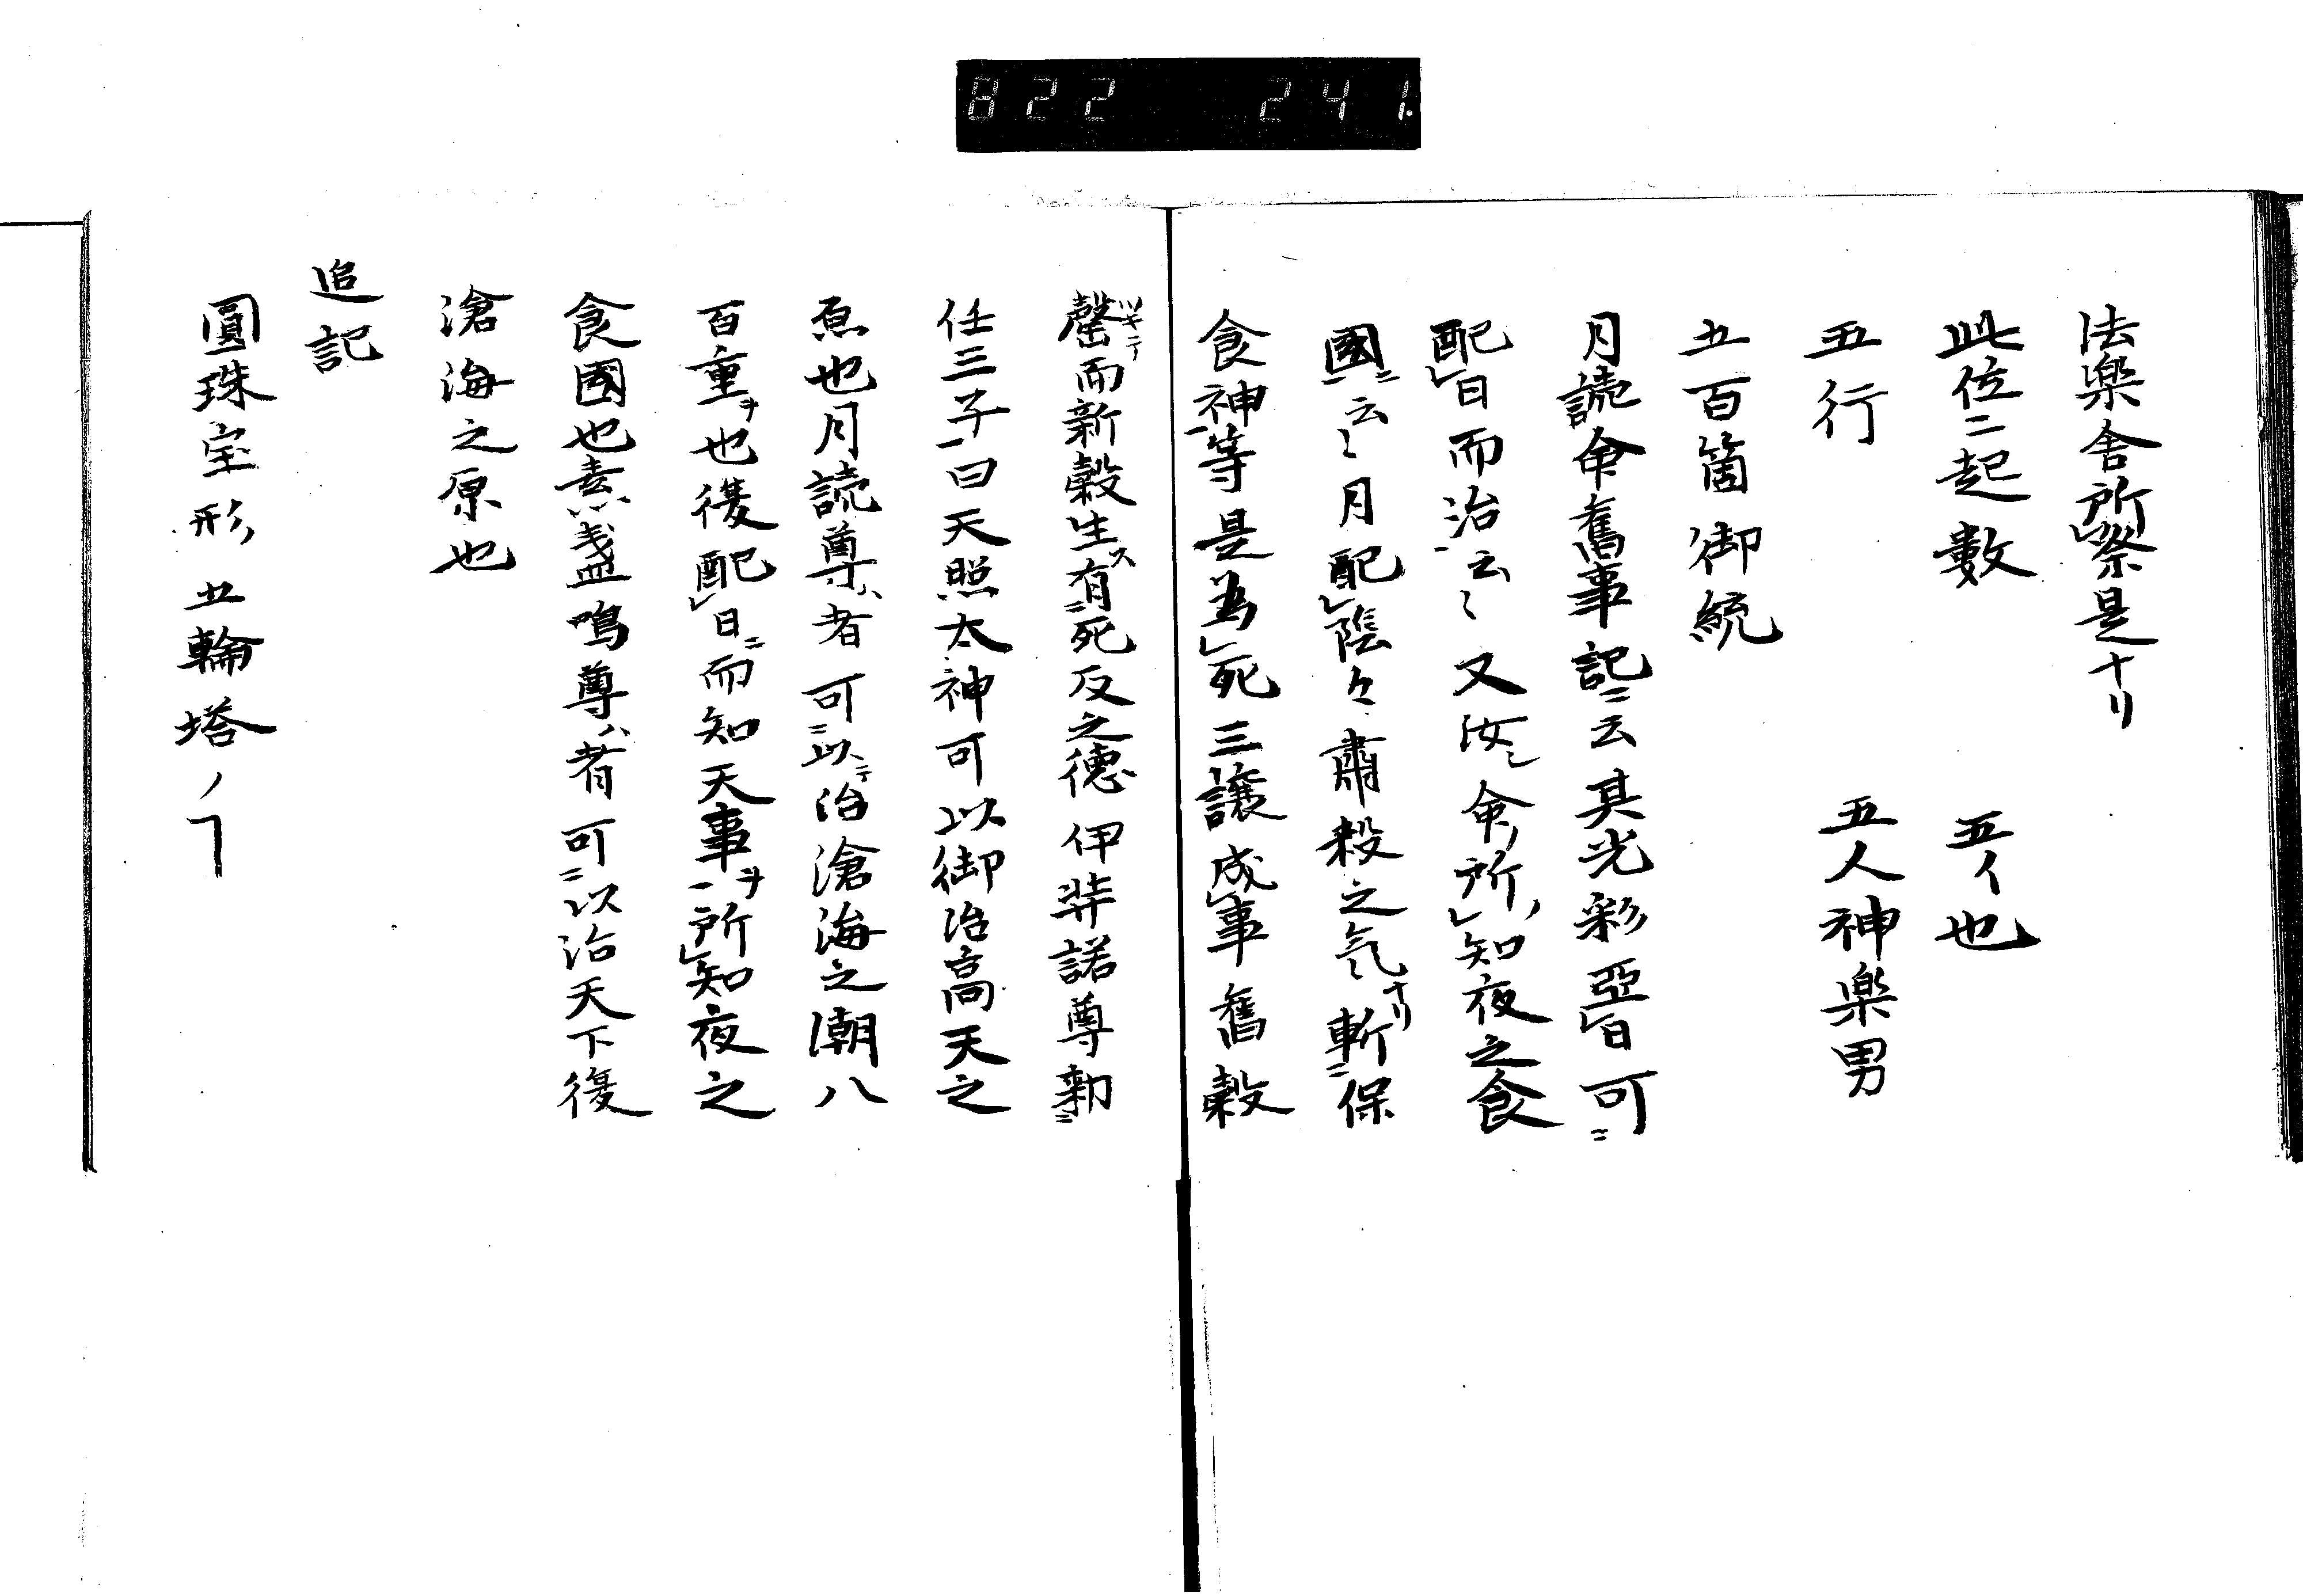 822 241.
法楽舎所祭是ナリ
此位ニ起數 五ノ也
五行 五人神楽男
五百箇御統
月読命舊事記ニ云其光彩亞日可
配日而治云々又汝命ノ所知夜之食
國云々月配陰々肅殺之氣ナリ斬保
食神等是為死三譲成事舊穀
罄ツキテ而新穀生ス有死反之德伊弉諾尊勅
任三子曰天照太神可以御治高天之
原也月読尊ハ者可以テ治滄海之潮八
百重ヲ也復配日ニ而知天事ヲ所知夜之
食國也素戔嗚尊ハ者可以治天下復
滄海之原也
追記
圓珠宝形五輪塔ノヿ